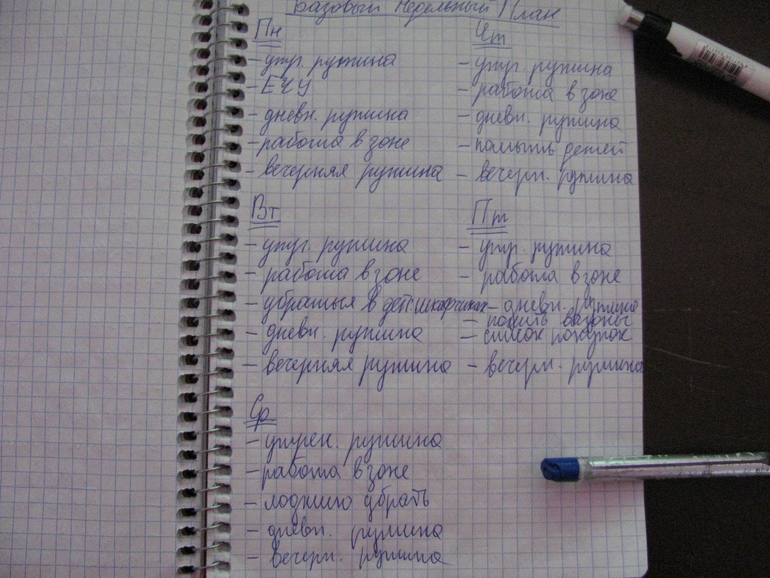 Базовый Недельный План
Пн
- утр. рутина
- ЕЧУ
- дневн. рутина
- работа в зоне
- вечерняя рутина
Вт
- утр. рутина
- работа в зоне
- убраться в дет. шкафчиках
- дневн. рутина
- вечерняя рутина
Ср
- утрен. рутина
- работа в зоне
- лоджию убрать
- дневн. рутина
- вечерн. рутина
Чт
- утр. рутина
- работа в зоне
- дневн. рутина
- помыть детей
- вечерн. рутина
Пт
- утр. рутина
- работа в зоне
- дневн. рутина
- полить вазоны
- список покупок
- вечерн. рутина